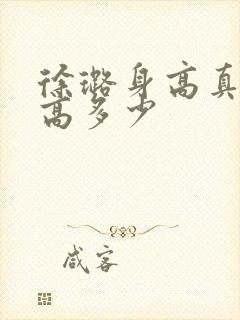 徐璐身高真
高多少
咸客